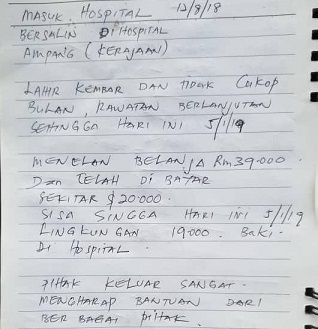 MASUK. HOSPITAL 12/8/18
BERSALIN DI HOSPITAL
AMPANG (KERAJAAN)
LAHIR KEMBAR DAN TIDAK CUKOP
BULAN, RAWATAN BERLANJUTAN
SEHINGGA HARI INI 5/1/19
MENELAN BELANJA RM39.000.
Dan TELAH DI BAYAR
SEKITAR $20.000.
SISA SINGGA HARI INI 5/1/19
LINGKUNGAN 19000. BAKI.
DI HOSPITAL.
PIHAK KELUAR SANGAT.
MENGHARAP BANTUAN DARI
BERBAGAI PIHAK.